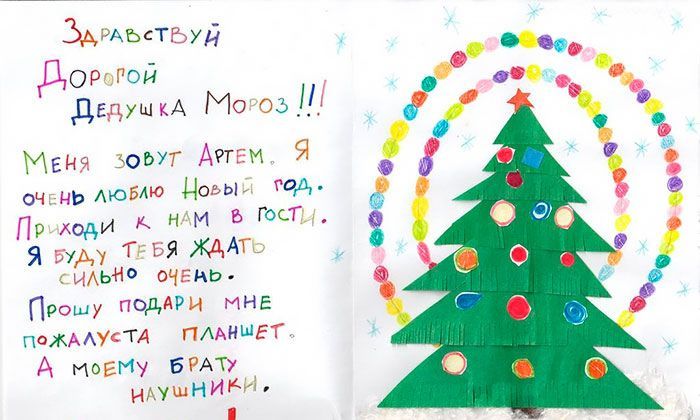 Здравствуй
Дорогой
Дедушка Мороз!!!
Меня зовут Артем. Я
очень люблю Новый год.
Приходи к нам в гости.
Я буду тебя ждать
сильно очень.
Прошу подари мне
пожалуста планшет.
А моему брату
наушники.